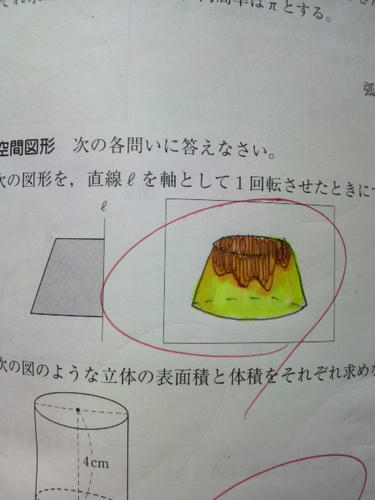 円周率はπとする。
弧
空間図形 次の各問いに答えなさい。
次の図形を，直線ℓを軸として1回転させたときに
ℓ
次の図のような立体の表面積と体積をそれぞれ求め
4cm